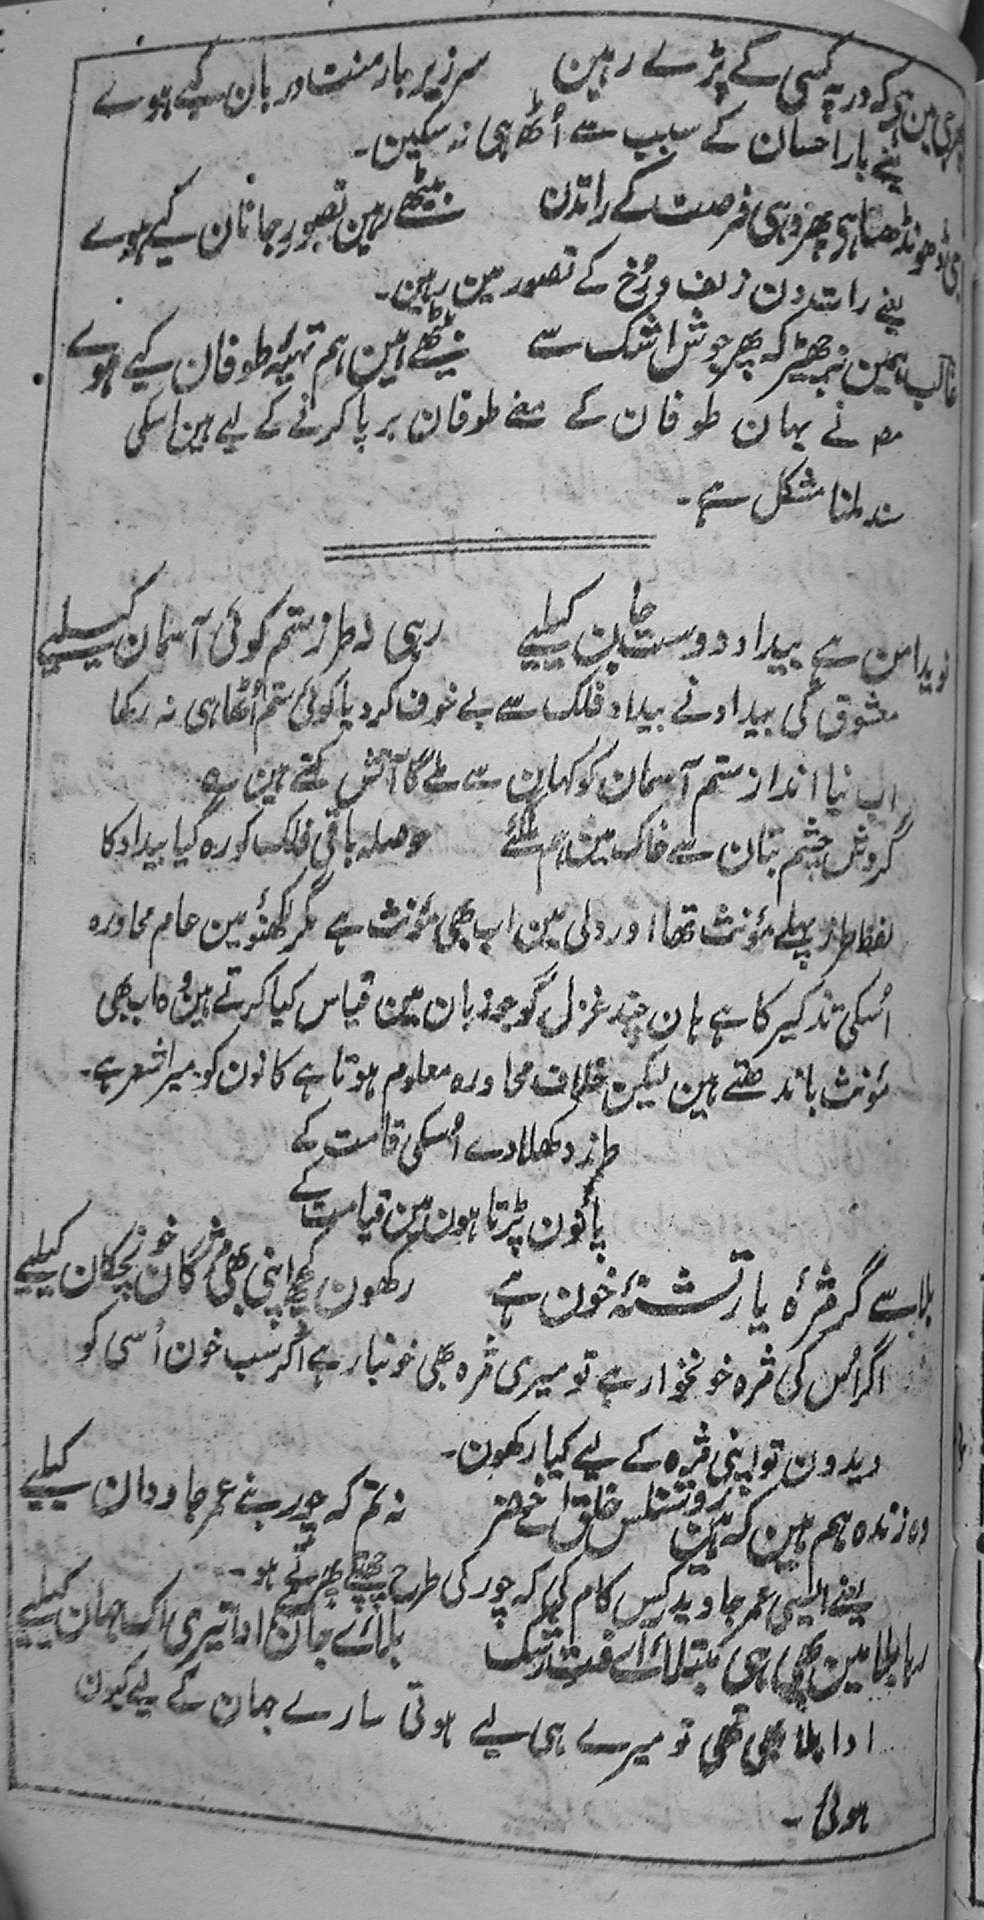 پھر جی مین ہے کہ در پہ کسی کے پڑے رہین سر زیر بار منت دربان کیے ہوے
یعنے بار احسان کے سبب سے اُٹھ ہی نہ سکین۔
جی ڈھونڈھتا ہی پھر وہی فرصت کے راتدن بیٹھے رہین تصور جانان کیے ہوے
یعنے راتدن زلف و رُخ کے تصور مین رہین۔
غالب ہمین نہ چھیڑ کہ پھر جوش اشک سے بیٹھے ہین ہم تہیۂ طوفان کیے ہوے
مصنے یہان طوفان کے معنے طوفان برپا کرنے کے لیے ہین اسکی
سند ملنا مشکل ہے۔
نوید امن ہے بیداد دوست جان کیلیے رہی نہ طرز ستم کوئی آسمان کیلیے
معشوق کی بیداد نے بیداد فلک سے بے خوف کر دیا کوئی ستم اُٹھا ہی نہ رکھا
اب نیا انداز ستم آسمان کو کہان سے ملے گا آتش کہتے ہین ؎
گردش چشم بتان سے خاک مین ہم ملگئے حوصلہ باقی فلک کو رہ گیا بیداد کا
لفظ طرز پہلے مؤنث تھا اور دلی مین اب بھی مؤنث ہے مگر لکھنؤ مین عام محاورہ
اُسکی تذکیر کا ہے ہان چند غزل گو جو زبان مین قیاس کیا کرتے ہین وہ اب بھی
مؤنث باندھتے ہین لیکن خلاف محاورہ معلوم ہوتا ہے کانون کو میرا شعر ہے۔
طرز دکھلا دے اُسکی قامت کے
پانون پڑتا ہون مین قیامت کے
بلا سے گر مژۂ یار تشنۂ خون ہے رکھون کچھ اپنی بھی مژگان خونچکان کیلیے
اگر اُس کی مژہ خونخوار ہے تو میری مژہ بھی خونبار ہے اگر سب خون اُسی کو
دیدون تو اپنی مژہ کے لیے کیا رکھون۔
وہ زندہ ہم ہین کہ ہین روشناس خلق اے خضر نہ تم کہ چور بنے عمر جاودان کیلیے
یعنے ایسی عمر جاوید کس کام کی کہ چور کی طرح چھپے پھرتے ہو۔
رہا بلا مین بھی مین مبتلاے آفت رشک بلاے جان ادا تیری اک جہان کیلیے
ادا بلا بھی تھی تو میرے ہی لیے ہوتی سارے جہان کے لیے کیون
ہوئی۔